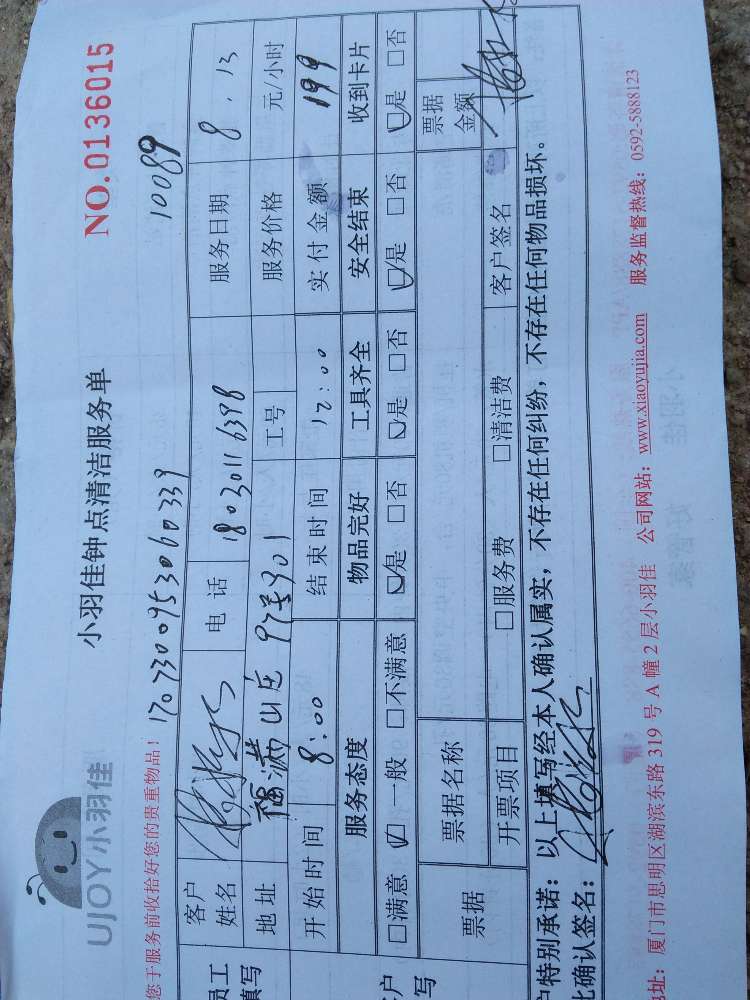 UJOY小羽佳
小羽佳钟点清洁服务单
NO.0136015
您于服务前收拾好您的贵重物品!
1707300953060339
10089
员工
填写
客户
姓名
电话
18030116398
服务日期
8.13
地址
福满山庄97号901
工号
服务价格
元/小时
开始时间
8:00
结束时间
12:00
实付金额
199
服务态度
物品完好
工具齐全
安全结束
收到卡片
□满意 □一般 □不满意
□是 □否
□是 □否
□是 □否
□是 □否
户
写
票据
票据名称
票据
金额
开票项目
□服务费
□清洁费
客户签名
户特别承诺:以上填写经本人确认属实,不存在任何纠纷,不存在任何物品损坏。
此确认签名:
址:厦门市思明区湖滨东路 319 号 A 幢 2 层小羽佳 公司网站:www.xiaoyujia.com 服务监督热线:0592-5888123